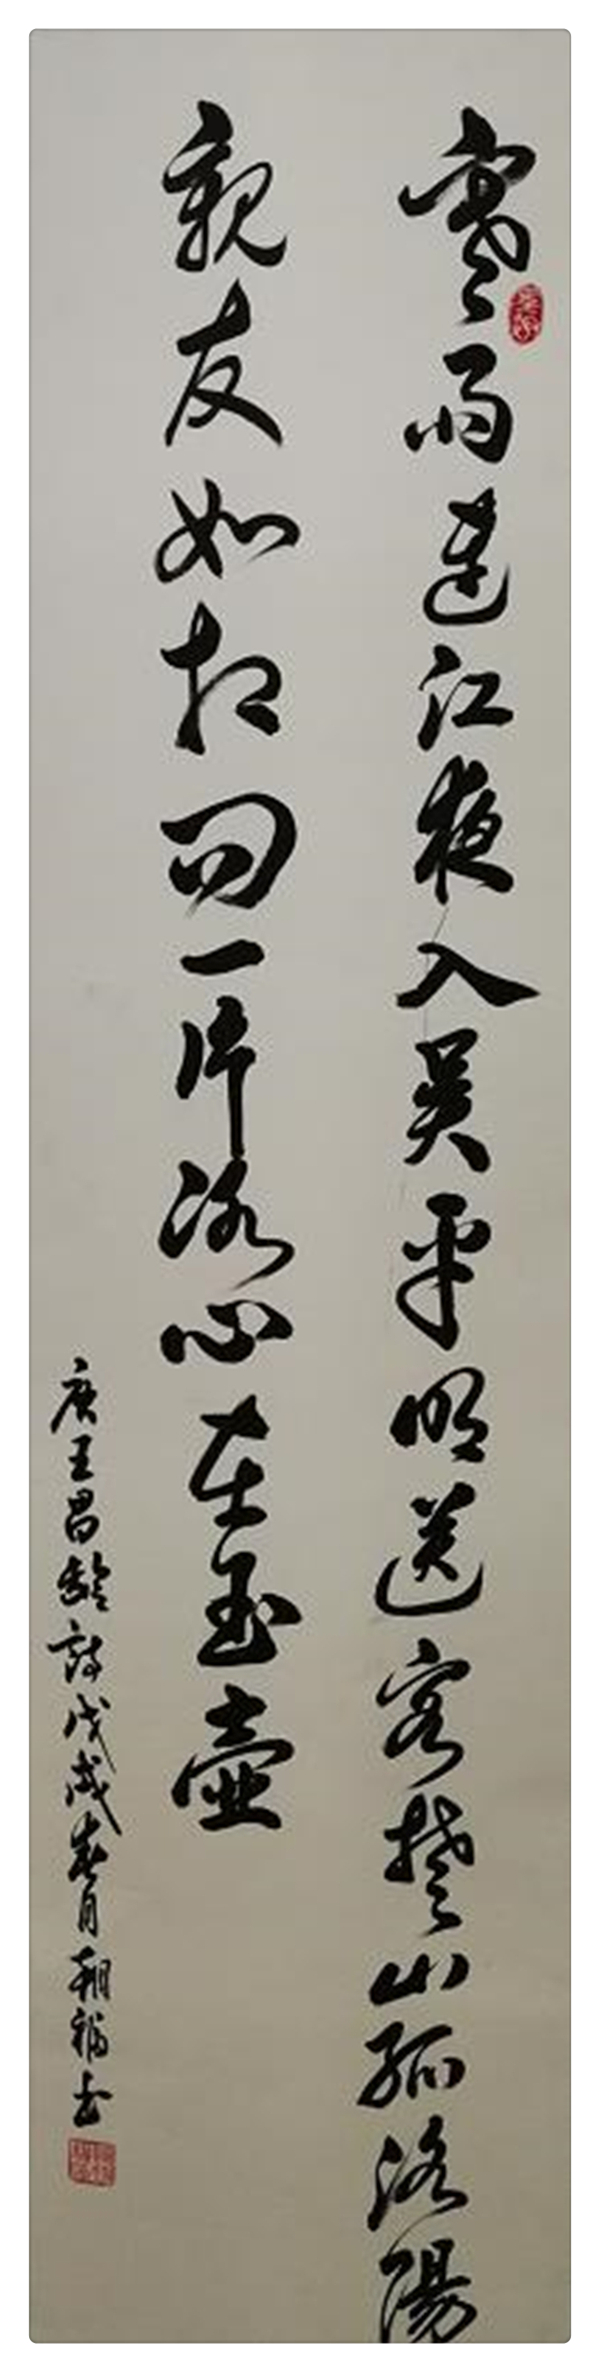 寒雨连江夜入吴平明送客楚山孤洛陽
親友如相问一片冰心在玉壶
唐王昌龄诗戊戌春月翔福书